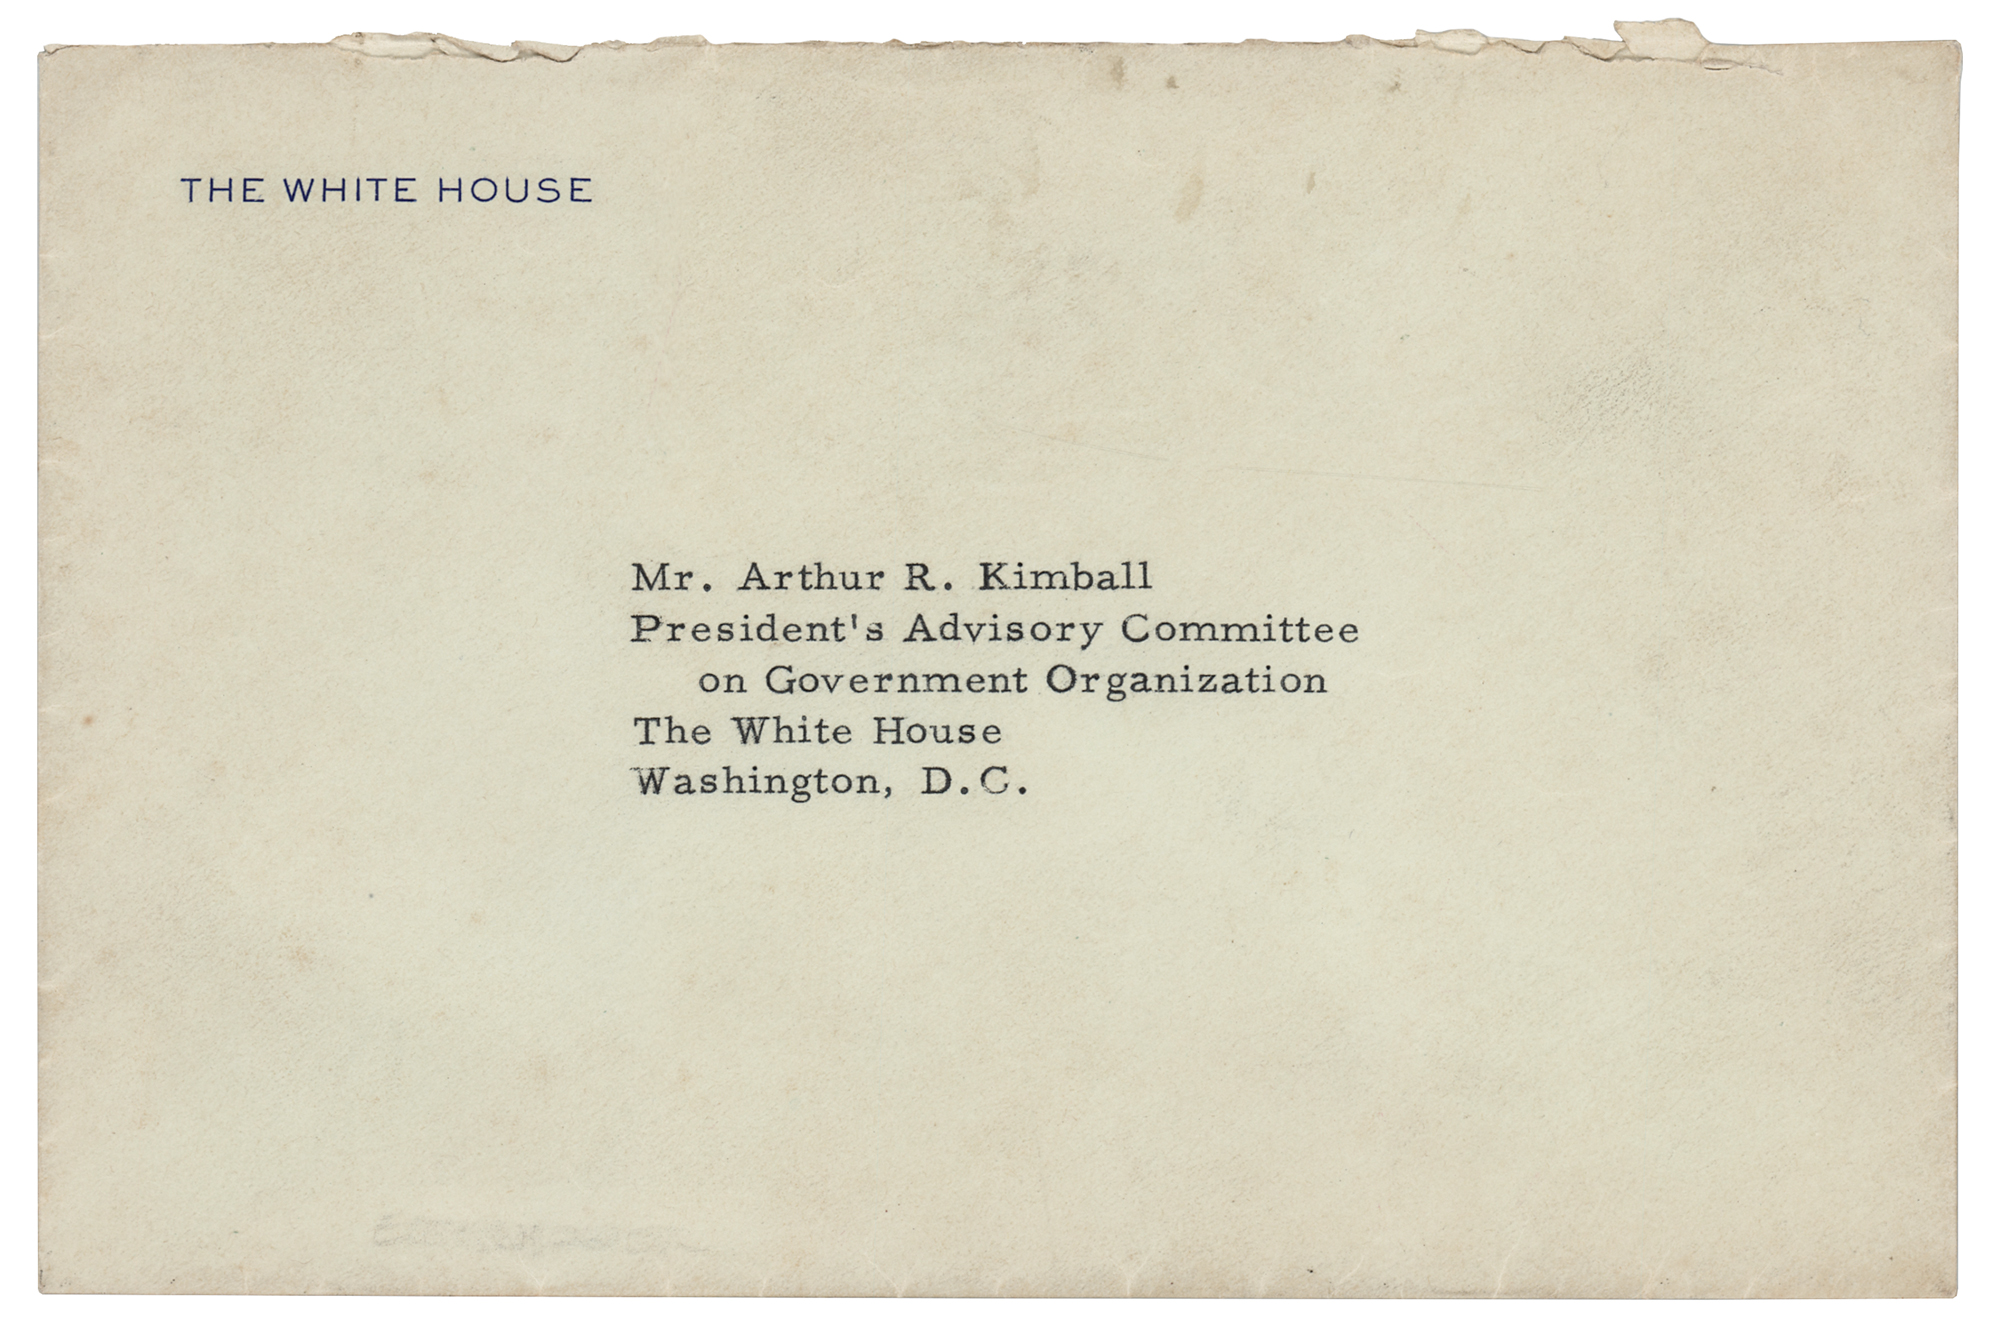 THE WHITE HOUSE
Mr. Arthur R. Kimball
President's Advisory Committee
on Government Organization
The White House
Washington, D.C.